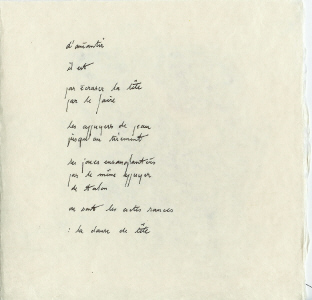 d'anéantir
il est
pas écraser la tête
par le faire
les appuyers de jean
jusqu'au
ses joues ensanglantées
par le même appuyer
de talon
où sont les actes rances
: la danse de tête